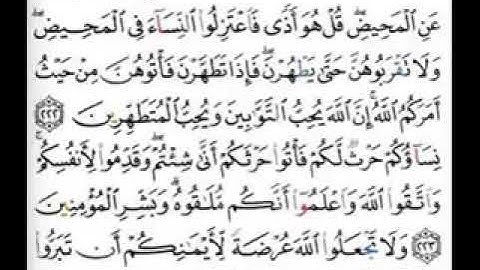 عَنِ ٱلْمَحِيضِ ۖ قُلْ هُوَ أَذًى فَٱعْتَزِلُوا۟ ٱلنِّسَآءَ فِى ٱلْمَحِيضِ ۖ
وَلَا تَقْرَبُوهُنَّ حَتَّىٰ يَطْهُرْنَ ۖ فَإِذَا تَطَهَّرْنَ فَأْتُوهُنَّ مِنْ حَيْثُ
أَمَرَكُمُ ٱللَّهُ ۚ إِنَّ ٱللَّهَ يُحِبُّ ٱلتَّوَّٰبِينَ وَيُحِبُّ ٱلْمُتَطَهِّرِينَ ٢٢٢
نِسَآؤُكُمْ حَرْثٌ لَّكُمْ فَأْتُوا۟ حَرْثَكُمْ أَنَّىٰ شِئْتُمْ ۖ وَقَدِّمُوا۟ لِأَنفُسِكُمْ ۚ
وَٱتَّقُوا۟ ٱللَّهَ وَٱعْلَمُوٓا۟ أَنَّكُم مُّلَٰقُوهُ ۗ وَبَشِّرِ ٱلْمُؤْمِنِينَ
٢٢٣ وَلَا تَجْعَلُوا۟ ٱللَّهَ عُرْضَةً لِّأَيْمَٰنِكُمْ أَن تَبَرُّوا۟